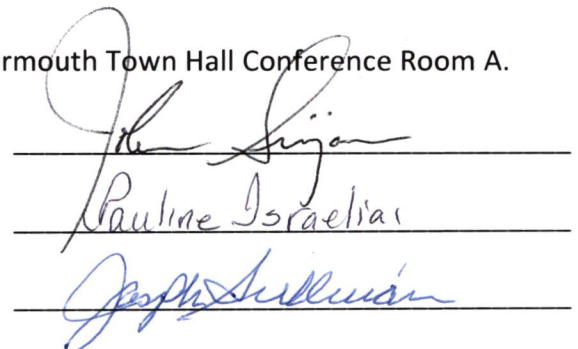 rmouth Town Hall Conference Room A.
John
Pauline Israelian
Joseph Sullivan